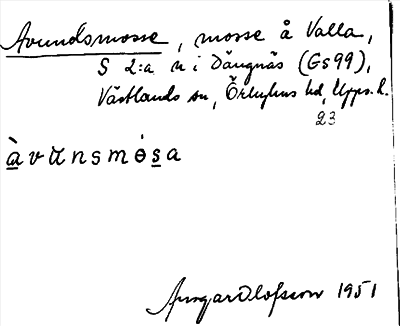 Avundsmosse, mosse å Valla,
S 2:a n i Dängnäs (Gs 99),
Västlands sn, Örbyhus hd, Upps. l.
23
àvŭnsmösa
Ansgar Olofsson 1951